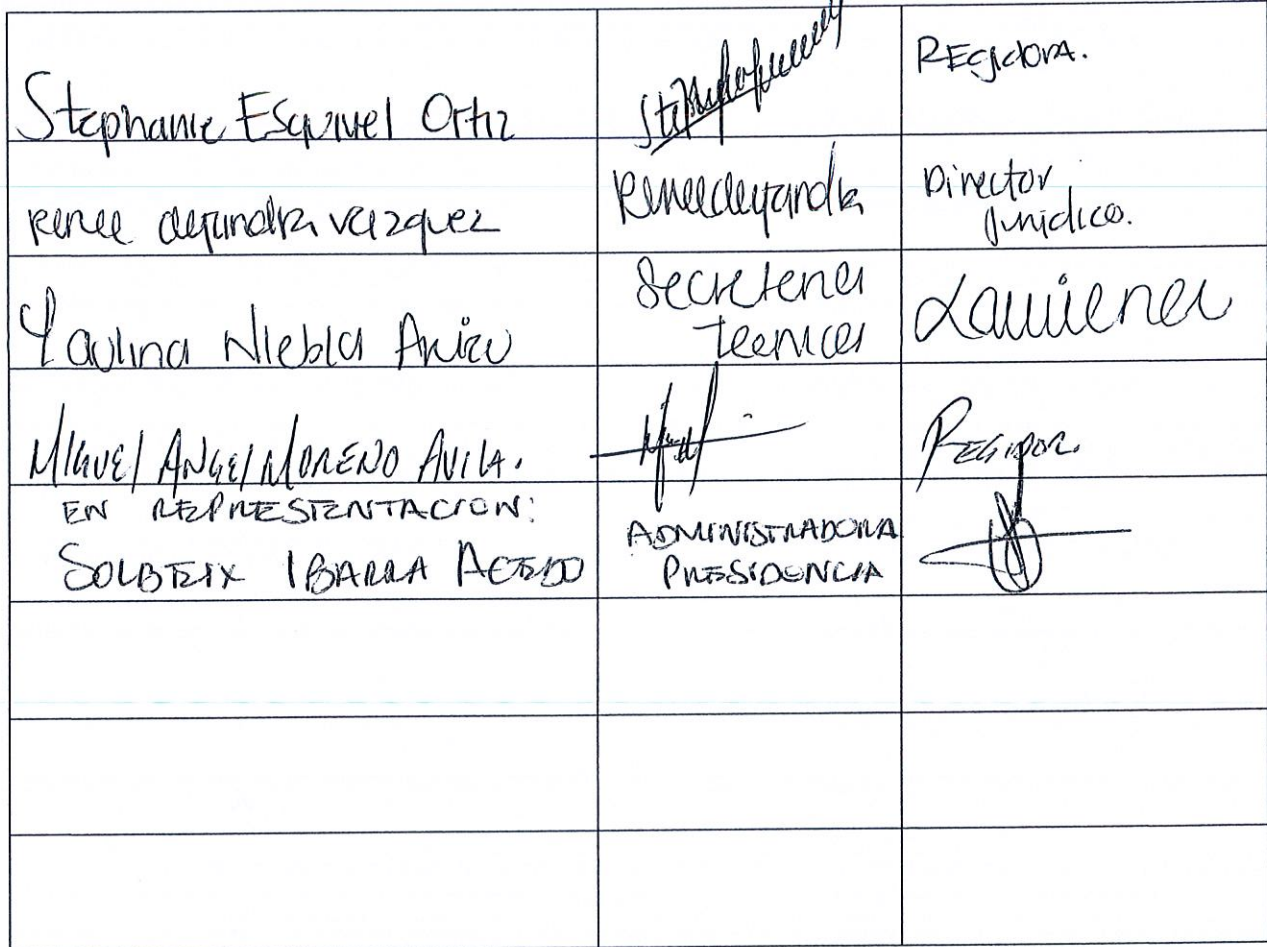 Stephanie Esquivel Ortiz
REgidora.
Renee alejandra vazquez
Reneealejandra
Director
Jurídico.
Paulina Niebla
Secretaria
tecnica
MIGUEl ANGEl MORENO AVILA.
REGIDOR.
EN REPRESENTACION:
IBARRA ACEDO
ADMINISTRADORA
PRESIDENCIA